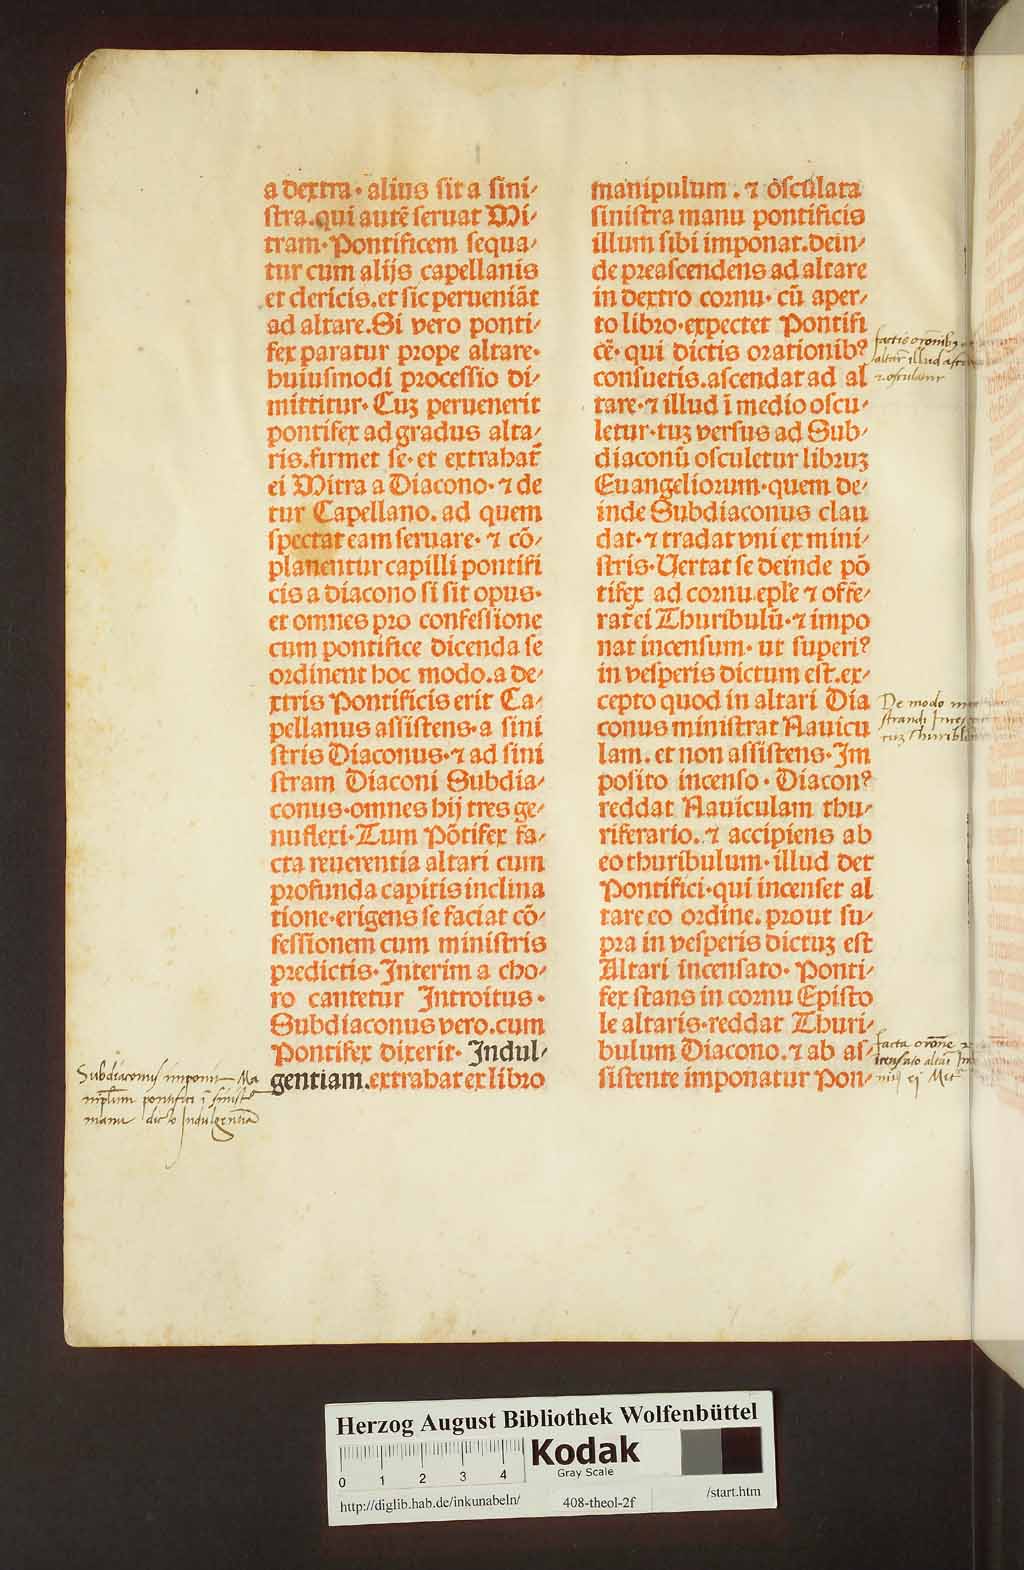 a dextra· alius sit a sini⸗
stra.qui autẽ seruat Mi⸗
tram· Pontificem sequa⸗
tur cum alijs capellanis
et clericis.et sic perueniãt
ad altare.Si vero ponti⸗
fex paratur prope altare·
huiusmodi processio di⸗
mittitur· Cuʒ peruenerit
pontifex ad gradus alta⸗
ris.firmet se· et extrahat̃
ei Mitra a Diacono· ⁊ de
tur Capellano. ad quem
spectat eam seruare· ⁊ cõ⸗
planentur capilli pontifi
cis a diacono si sit opus·
et omnes pro confessione
cum pontifice dicenda se
ordinent hoc modo.a de⸗
xtris Pontificis erit Ca⸗
pellanus assistens· a sini
stris Diaconus· ⁊ ad sini
stram Diaconi Subdia⸗
conus·omnes hij tres ge⸗
nuflexi· Tum Põtifex fa⸗
cta reuerentia altari cum
profunda capitis inclina
tione·erigens se faciat cõ⸗
fessionem cum ministris
predictis·Interim a cho⸗
ro cantetur Introitus·
Subdiaconus vero.cum
Pontifex dixerit· Indul⸗
gentiam.extrahat ex libro
Subdiaconus imponit Ma
nip̃lum pontifici ĩ sinist̃
manu dicto Indulgentiã
manipulum . ⁊ osculata
sinistra manu pontificis
illum sibi imponat.dein⸗
de preascendens ad altare
in dextro cornu· cũ aper⸗
to libro·expectet Pontifi
cẽ· qui dictis orationibꝰ
consuetis.ascendat ad al
tare·⁊ illud ĩ medio oscu⸗
letur·tuʒ versus ad Sub⸗
diaconũ osculetur libruʒ
Euangeliorum·quem de⸗
inde Subdiaconus clau
dat·⁊ tradat vni ex mini⸗
stris·Vertat se deinde põ
tifex ad cornu.ep̃le ⁊ offe⸗
rat̃ ei Thuribulũ·⁊ impo
nat incensum· ut superiꝰ
in vesperis dictum est.ex⸗
cepto quod in altari Dia
conus ministrat Nauicu
lam. et non assistens· Im
posito incenso · Diaconꝰ
reddat Nauiculam thu⸗
riferario. ⁊ accipiens ab
eo thuribulum· illud det
Pontifici·qui incenset al
tare eo ordine. prout su⸗
pra in vesperis dictuʒ est
Altari incensato· Ponti⸗
fex stans in cornu Episto
le altaris·reddat Thuri⸗
bulum Diacono. ⁊ ab as⸗
sistente imponatur Pon⸗
factis orõnibꝰ
altar̃ illud
⁊ osculatur
De modo
strandi
tuʒ Thuribl
facta orõne
incensato altari
ei Mit̃
Herzog August Bibliothek Wolfenbüttel
Kodak
Gray Scale
0 1 2 3 4
http://diglib.hab.de/inkunabeln/ 408-theol-2f /start.htm